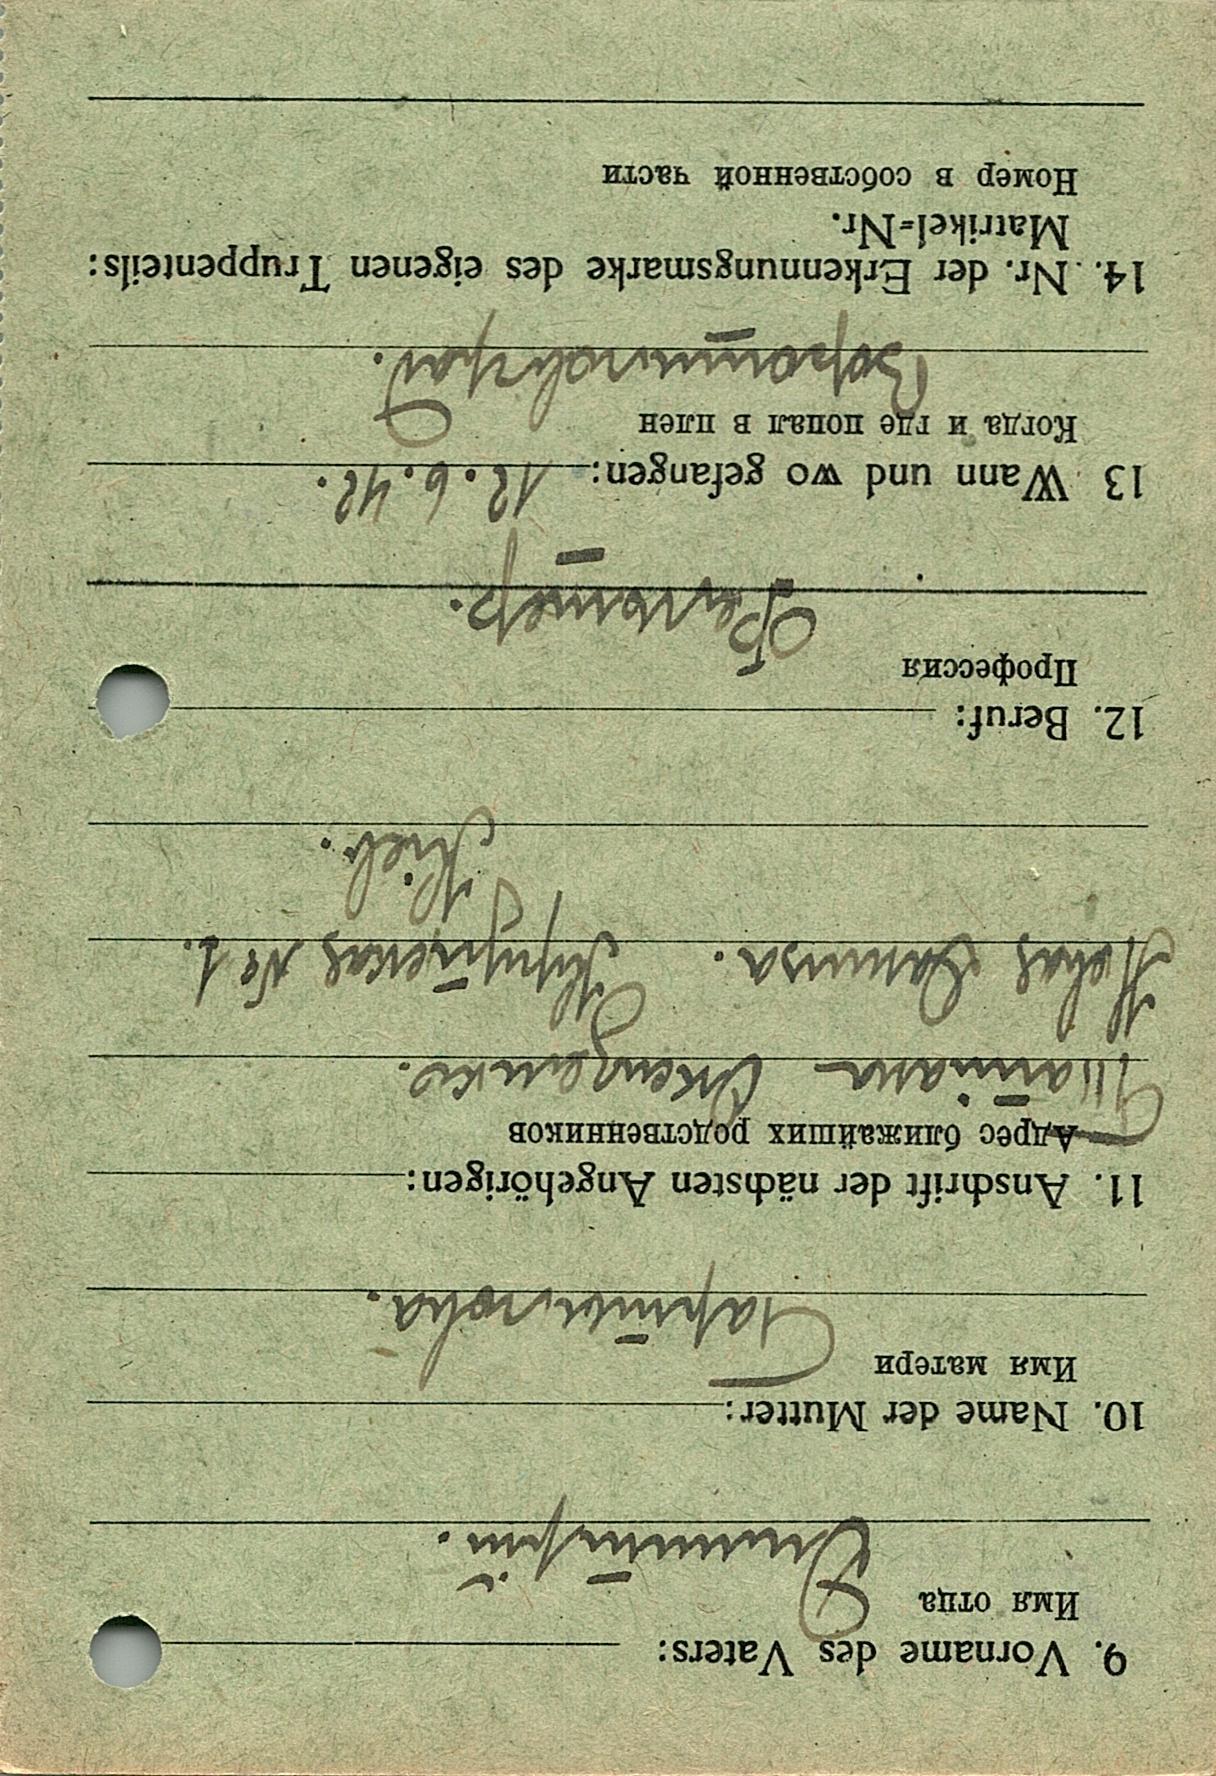 9. Vorname des Vaters:
Имя отца
Дмитрий.
10. Name der Mutter:
Имя матери
11. Anschrift der nächsten Angehörigen:
Адрес ближайших родственников
Татiяна
13 Wann und wo gefangen: 12.6.42.
Когда и где попал в плен
Ворошиловград.
Кiев.
№ 1.
12. Beruf:
Профессия
Фельдшер.
14. Nr. der Erkennungsmarke des eigenen Truppenteils:
Matrikel=Nr.
Номер в собственной части